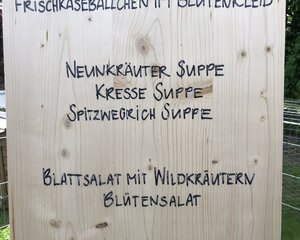 FRISCHKÄSEBÄLLCHEN IM BLÜTENKLEID
NEUNKRÄUTER SUPPE
KRESSE SUPPE
SPITZWEGRICH SUPPE
BLATTSALAT MIT WILDKRÄUTERN
BLÜTENSALAT